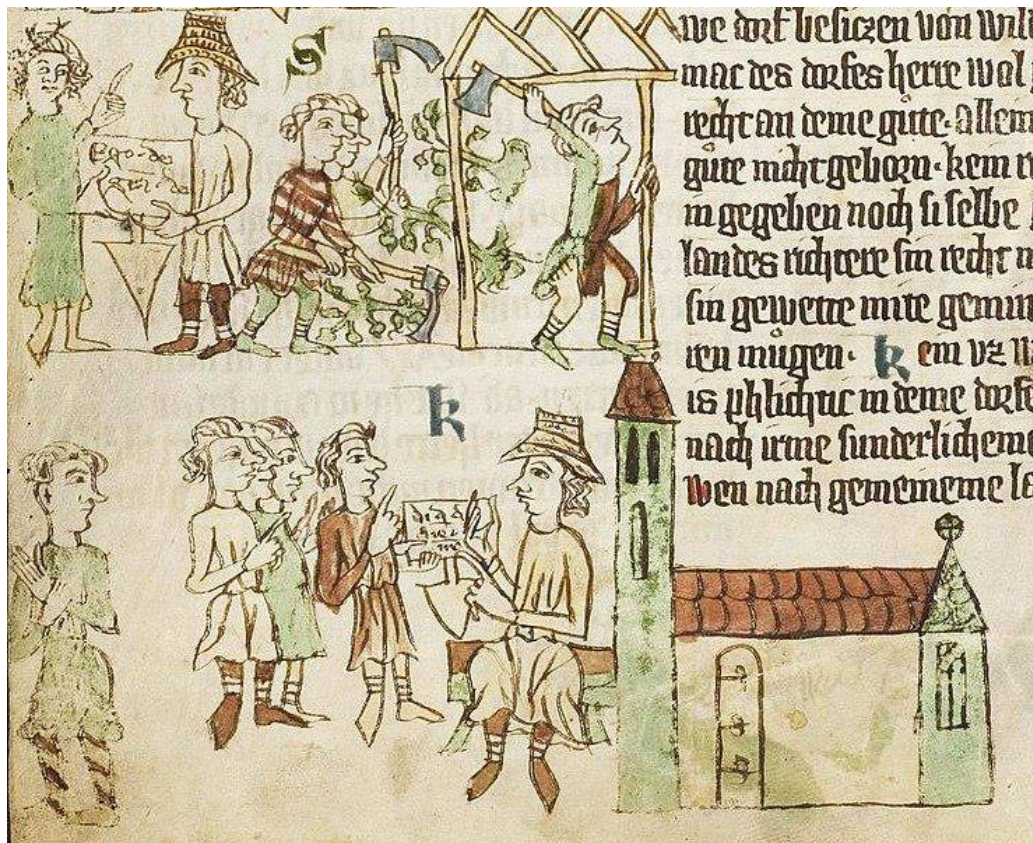 S
Ego dei
gra
we dorf besiczen von wil
mac des dorfes herre wol
recht an deme gute. allein
gute nicht geborn. kein
in gegeben noch si selbe
landes richtere sin recht
sin gewette mite gemin
ren mugen. k ein vz
is phlichtic in deme dorfe
nach irme sunderlicheme
wen nach gemeineme
k